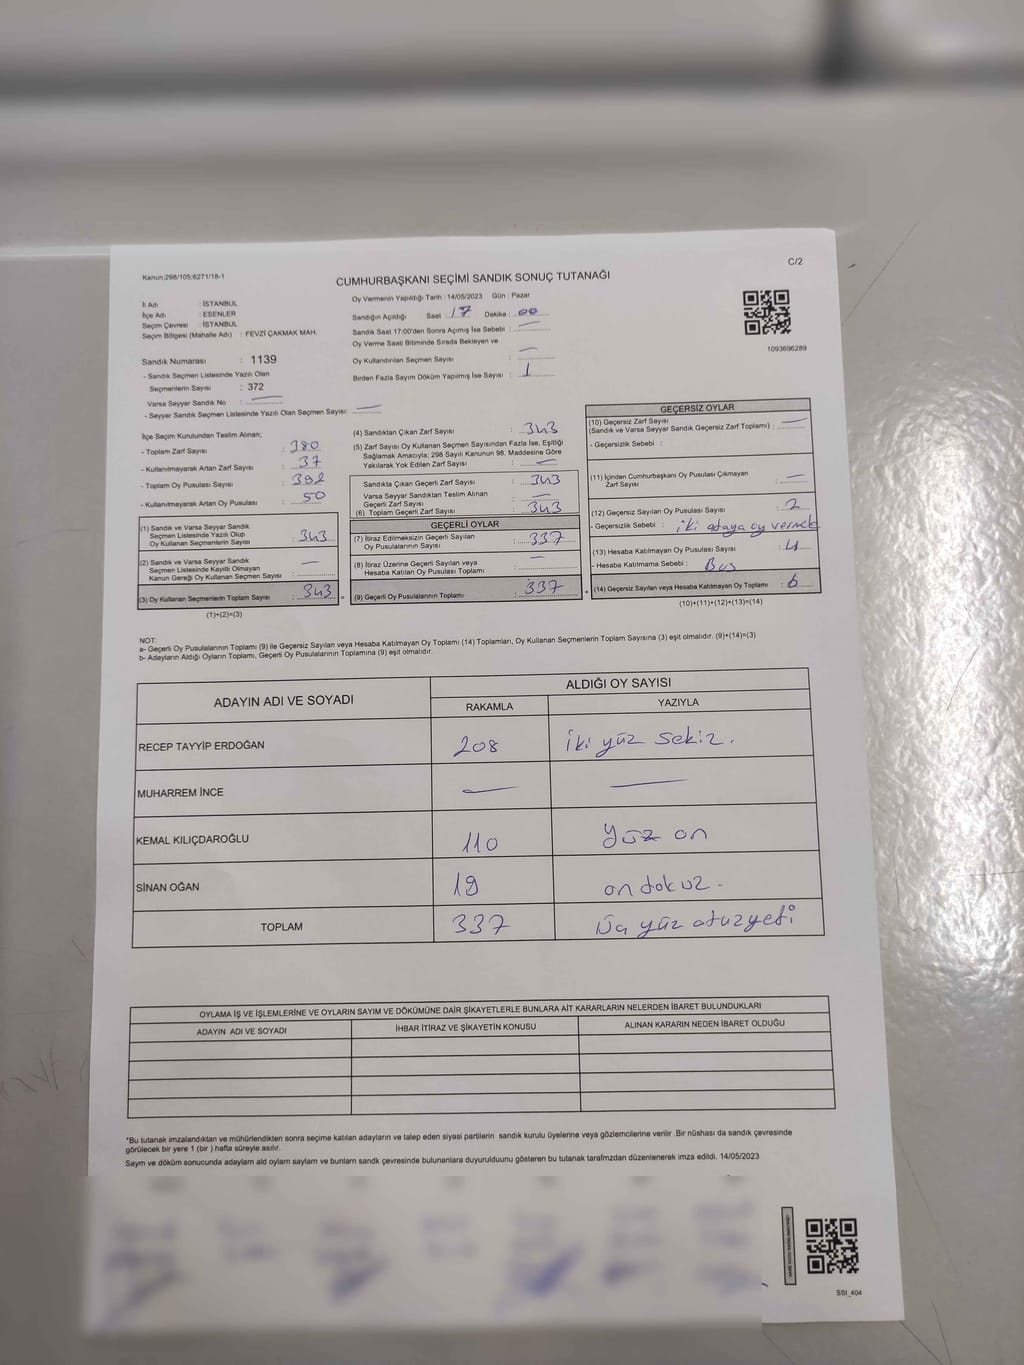 Kanun:298/105:6271/18-1
C/2
CUMHURBAŞKANI SEÇİMİ SANDIK SONUÇ TUTANAĞI
İl Adı : İSTANBUL
İlçe Adı : ESENLER
Seçim Çevresi : İSTANBUL
Seçim Bölgesi (Mahalle Adı) : FEVZİ ÇAKMAK MAH.
Sandık Numarası : 1139
- Sandık Seçmen Listesinde Yazılı Olan
Seçmenlerin Sayısı : 372
Varsa Seyyar Sandık No : —
- Seyyar Sandık Seçmen Listesinde Yazılı Olan Seçmen Sayısı: —
Oy Vermenin Yapıldığı Tarih : 14/05/2023 Gün : Pazar
Sandığın Açıldığı Saat : 17 Dakika : 00
Sandık Saat 17:00'den Sonra Açımış İse Sebebi : —
Oy Verme Saati Bitiminde Sırada Bekleyen ve
Oy Kullandırılan Seçmen Sayısı : —
Birden Fazla Sayım Döküm Yapılmış İse Sayısı : 1
1093696289
İlçe Seçim Kurulundan Teslim Alınan;
- Toplam Zarf Sayısı : 380
- Kullanılmayarak Artan Zarf Sayısı : 37
- Toplam Oy Pusulası Sayısı :
- Kullanılmayarak Artan Oy Pusulası : 50
(1) Sandık ve Varsa Seyyar Sandık
Seçmen Listesinde Yazılı Olup
Oy Kullanan Seçmenlerin Sayısı : 343
(2) Sandık ve Varsa Seyyar Sandık
Seçmen Listesinde Kayıtlı Olmayan
Kanun Gereği Oy Kullanan Seçmen Sayısı : —
(3) Oy Kullanan Seçmenlerin Toplam Sayısı : 343 =
(1)+(2)=(3)
(4) Sandıktan Çıkan Zarf Sayısı : 343
(5) Zarf Sayısı Oy Kullanan Seçmen Sayısından Fazla İse, Eşitliği
Sağlamak Amacıyla; 298 Sayılı Kanunun 98. Maddesine Göre
Yakılarak Yok Edilen Zarf Sayısı : —
Sandıkta Çıkan Geçerli Zarf Sayısı : 343
Varsa Seyyar Sandıktan Teslim Alınan
Geçerli Zarf Sayısı : —
(6) Toplam Geçerli Zarf Sayısı : 343
GEÇERLİ OYLAR
(7) İtiraz Edilmeksizin Geçerli Sayılan
Oy Pusulalarının Sayısı : 337
(8) İtiraz Üzerine Geçerli Sayılan veya
Hesaba Katılan Oy Pusulası Toplamı : —
(9) Geçerli Oy Pusulalarının Toplamı : 337 +
GEÇERSİZ OYLAR
(10) Geçersiz Zarf Sayısı
(Sandık ve Varsa Seyyar Sandık Geçersiz Zarf Toplamı) : —
- Geçersizlik Sebebi :
(11) İçinden Cumhurbaşkanı Oy Pusulası Çıkmayan
Zarf Sayısı : —
(12) Geçersiz Sayılan Oy Pusulası Sayısı : 2
- Geçersizlik Sebebi : iki adaya oy vermek
(13) Hesaba Katılmayan Oy Pusulası Sayısı : 4
- Hesaba Katılmama Sebebi : Boş
(14) Geçersiz Sayılan veya Hesaba Katılmayan Oy Toplamı : 6
(10)+(11)+(12)+(13)=(14)
NOT:
a- Geçerli Oy Pusulalarının Toplamı (9) ile Geçersiz Sayılan veya Hesaba Katılmayan Oy Toplamı (14) Toplamları, Oy Kullanan Seçmenlerin Toplam Sayısına (3) eşit olmalıdır. (9)+(14)=(3)
b- Adayların Aldığı Oyların Toplamı, Geçerli Oy Pusulalarının Toplamına (9) eşit olmalıdır.
ADAYIN ADI VE SOYADI
ALDIĞI OY SAYISI
RAKAMLA YAZIYLA
RECEP TAYYİP ERDOĞAN 208 iki yüz sekiz.
MUHARREM İNCE — —
KEMAL KILIÇDAROĞLU 110 yüz on
SİNAN OĞAN 19 on dokuz.
TOPLAM 337 Üç yüz otuzyedi
OYLAMA İŞ VE İŞLEMLERİNE VE OYLARIN SAYIM VE DÖKÜMÜNE DAİR ŞİKAYETLERLE BUNLARA AİT KARARLARIN NELERDEN İBARET BULUNDUKLARI
ADAYIN ADI VE SOYADI İHBAR İTİRAZ VE ŞİKAYETİN KONUSU ALINAN KARARIN NEDEN İBARET OLDUĞU
*Bu tutanak imzalandıktan ve mühürlendikten sonra seçime katılan adayların ve talep eden siyasi partilerin sandık kurulu üyelerine veya gözlemcilerine verilir .Bir nüshası da sandık çevresinde
görülecek bir yere 1 (bir ) hafta süreyle asılır.
Saym ve döküm sonucunda adaylarn ald oylarn saylarn ve bunlarn sandk çevresinde bulunanlara duyurulduunu gösteren bu tutanak tarafmzdan düzenlenerek imza edildi. 14/05/2023
SSI_404